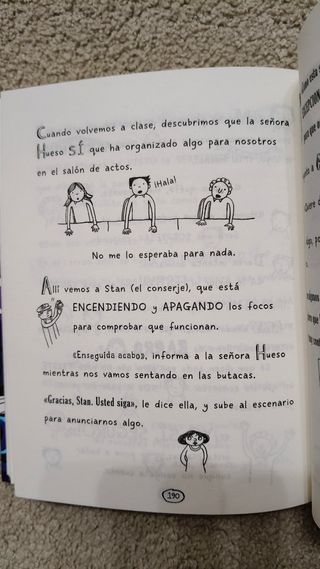 Cuando volvemos a clase, descubrimos que la señora
Hueso SÍ que ha organizado algo para nosotros
en el salón de actos.
¡Hala!
No me lo esperaba para nada.
Allí vemos a Stan (el conserje), que está
ENCENDIENDO y APAGANDO los focos
para comprobar que funcionan.
«Enseguida acabo», informa a la señora Hueso
mientras nos vamos sentando en las butacas.
«Gracias, Stan. Usted siga», le dice ella, y sube al escenario
para anunciarnos algo.
190